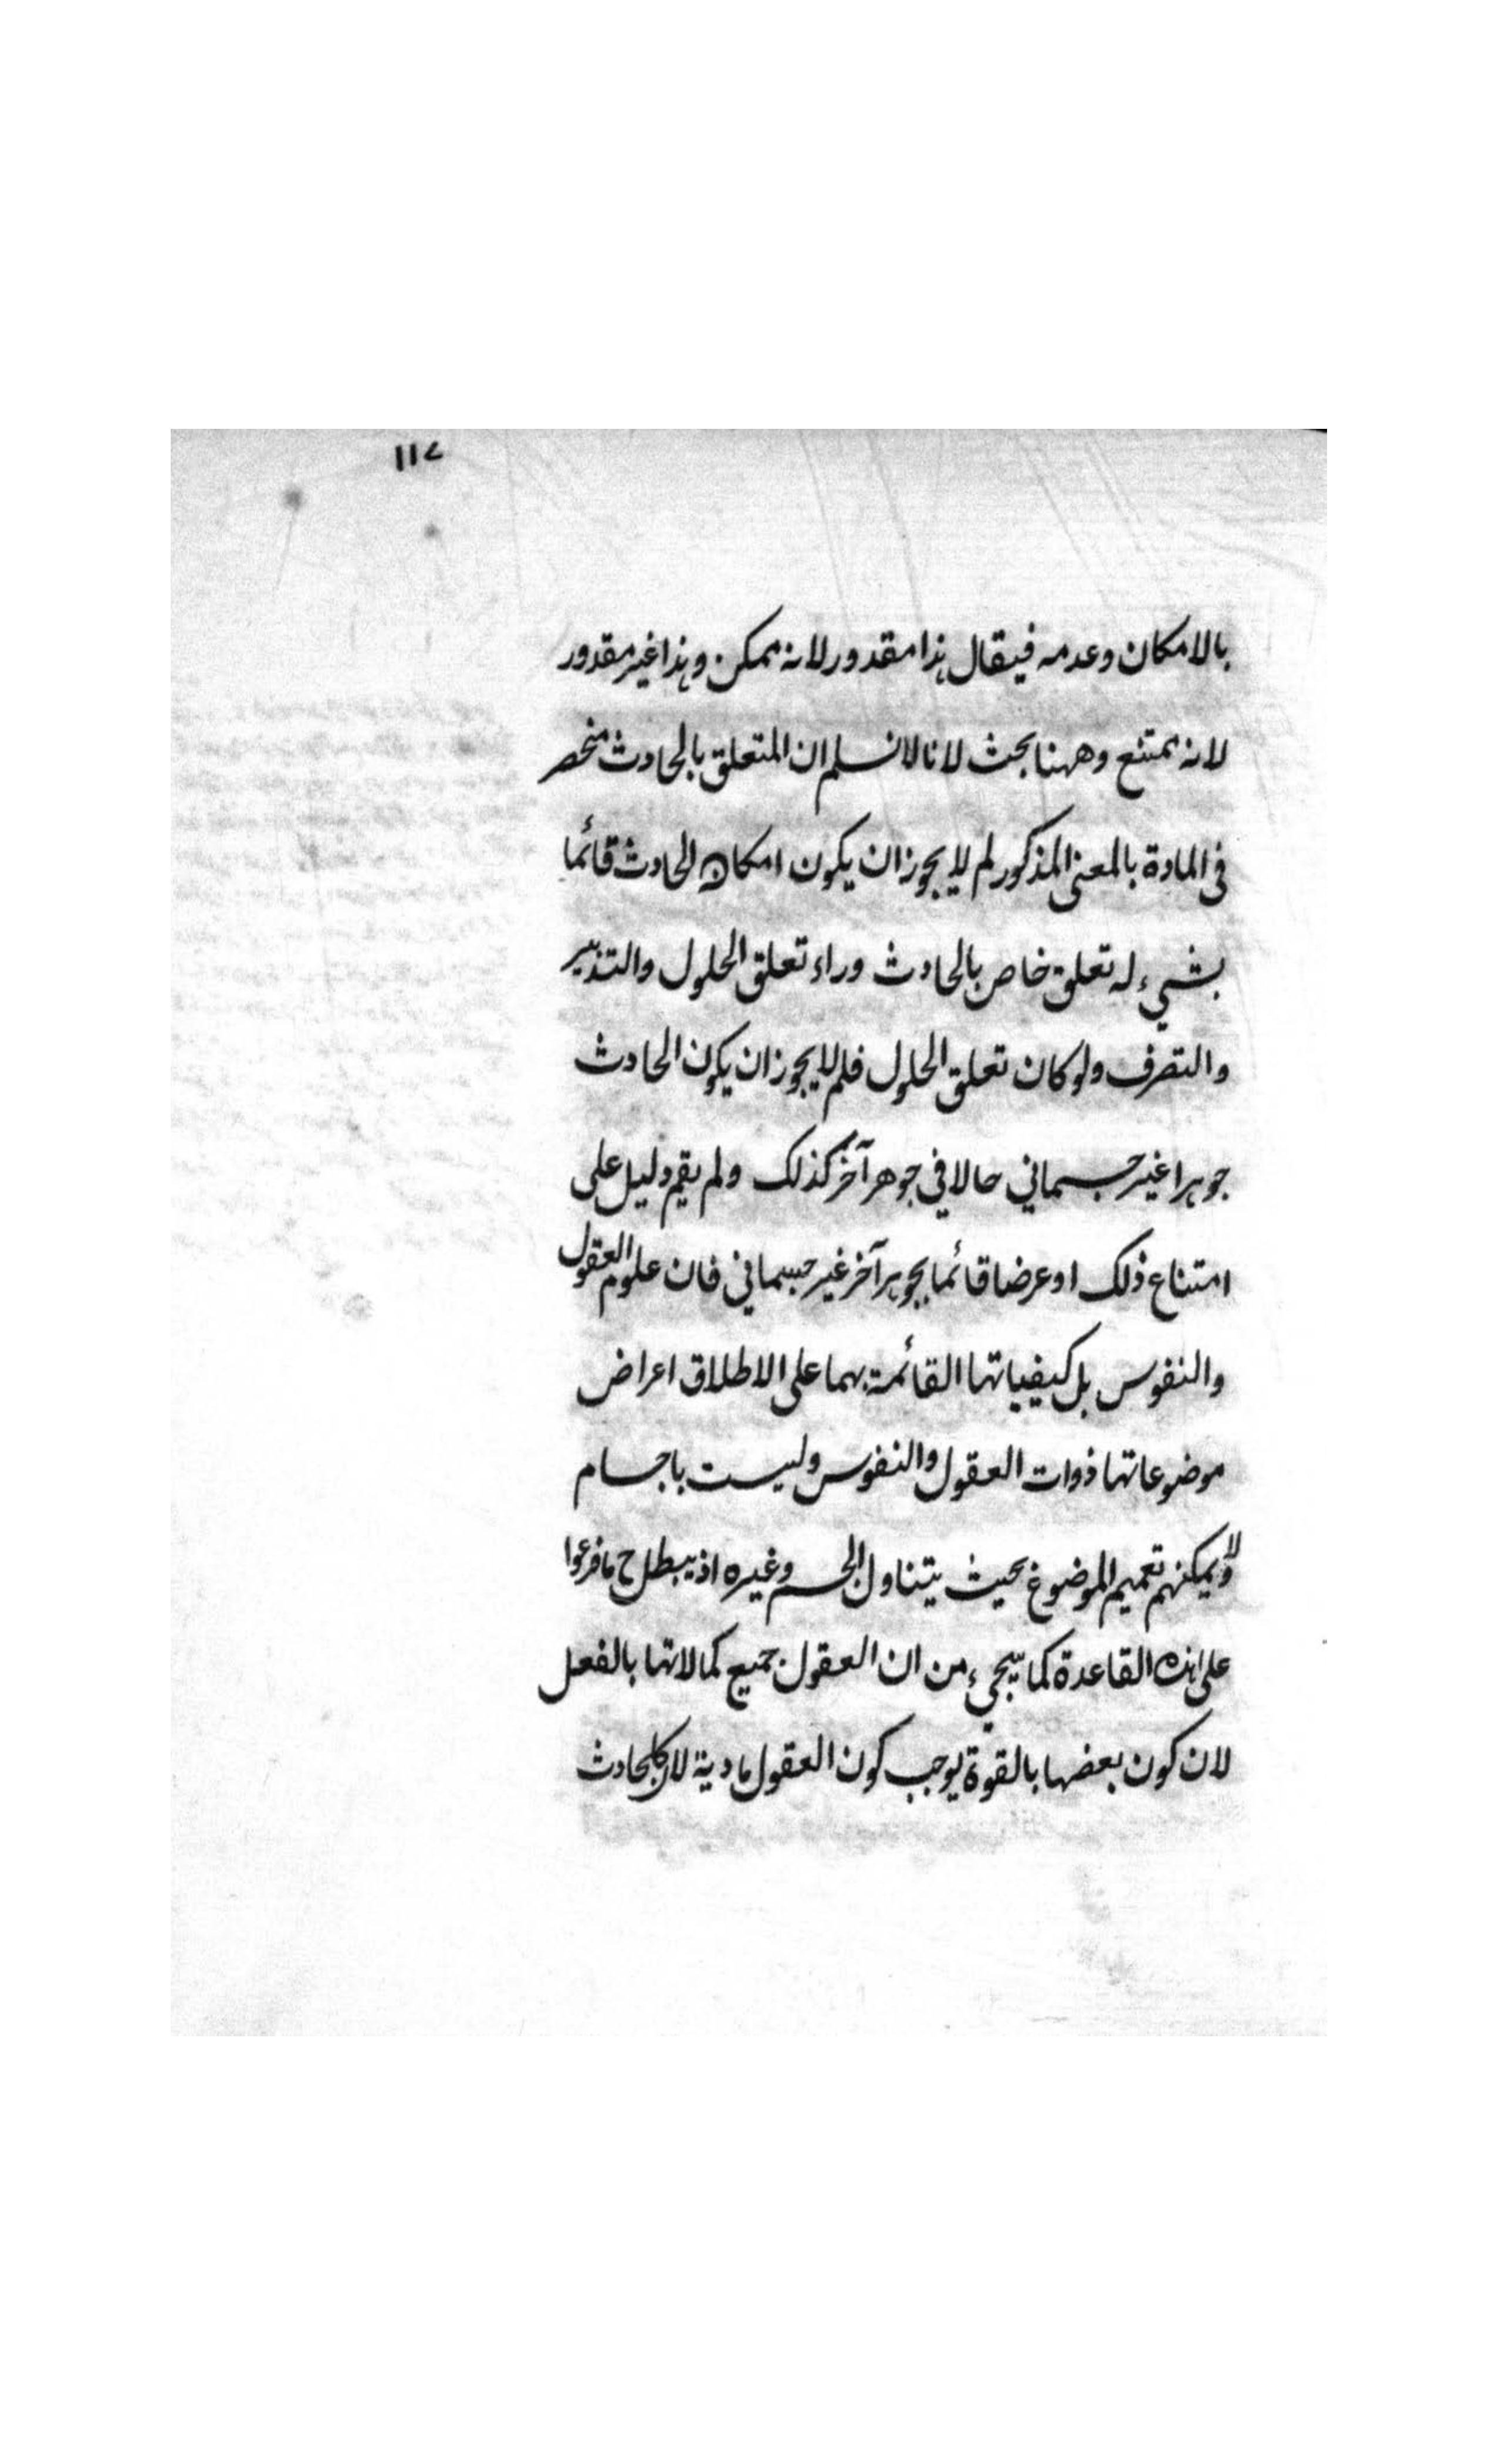 ١١٤
بالامكان وعدمه فيقال هذا مقدور لانه ممكن وهذا غير مقدور
لانه ممتنع وههنا بحث لانا لا نسلم ان المتعلق بالحادث منحصر
فى المادة بالمعنى المذكور لم لا يجوز ان يكون امكان الحادث قائما
بشيء له تعلق خاص بالحادث وراء تعلق الحلول والتدبير
والتصرف ولو كان تعلق الحلول فلم لا يجوز ان يكون الحادث
جوهرا غير جسماني حالا في جوهر آخر كذلك ولم يقم دليل على
امتناع ذلك او عرضا قائما بجوهر آخر غير جسماني فان علوم العقول
والنفوس بل كيفياتها القائمة بهما على الاطلاق اعراض
موضوعاتها ذوات العقول والنفوس وليست باجسام
ولا يمكنهم تعميم الموضوع بحيث يتناول الجسم وغيره اذ يبطل ح ما فرعوا
على هذه القاعدة كما سيجيء من ان العقول جميع كمالاتها بالفعل
لان كون بعضها بالقوة يوجب كون العقول مادية لان كل حادث